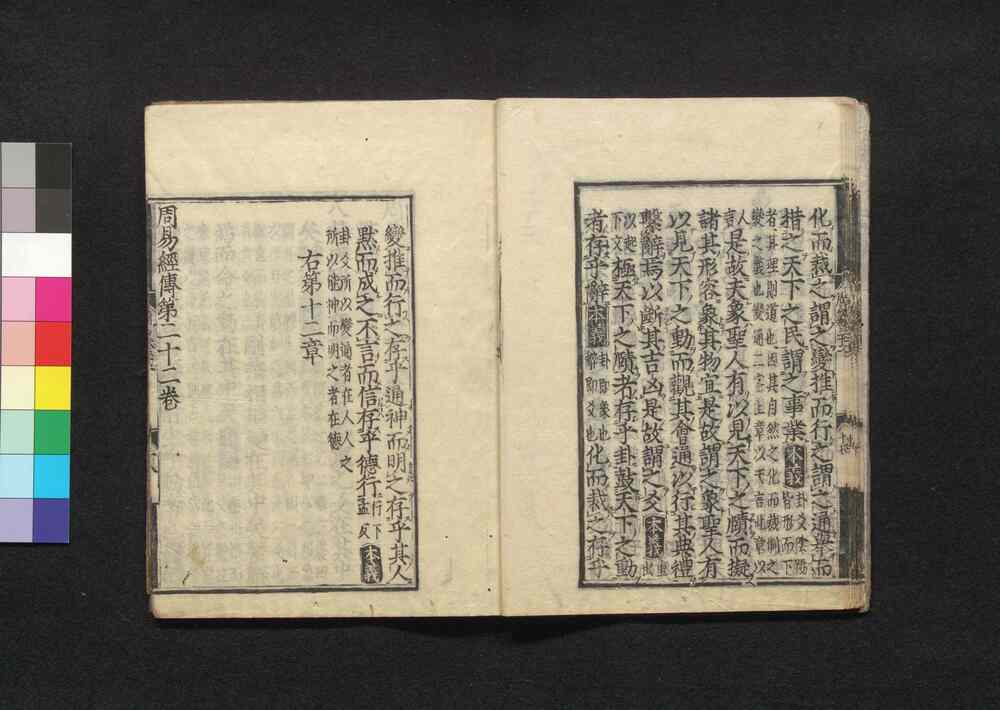 化而裁之謂之變推而行之謂之通舉而
措之天下之民謂之事業本義卦爻陰陽皆形而下
者其理則道也因其自然之化而裁制之
變之義也變通二字上章以天言此章以
人言是故夫象聖人有以見天下之賾而擬
諸其形容象其物宜是故謂之象聖人有
以見天下之動而觀其會通以行其典禮
繫辭焉以斷其吉凶是故謂之爻本義重出
以起下文極天下之賾者存乎卦鼓天下之動
者存乎辭本義卦即象也辭即爻也化而裁之存乎
變推而行之存乎通神而明之存乎其人
默而成之不言而信存乎德行行下孟反本義
卦爻所以變通者在人人之
所以能神而明之者在德
右第十二章
周易經傳第二十二卷